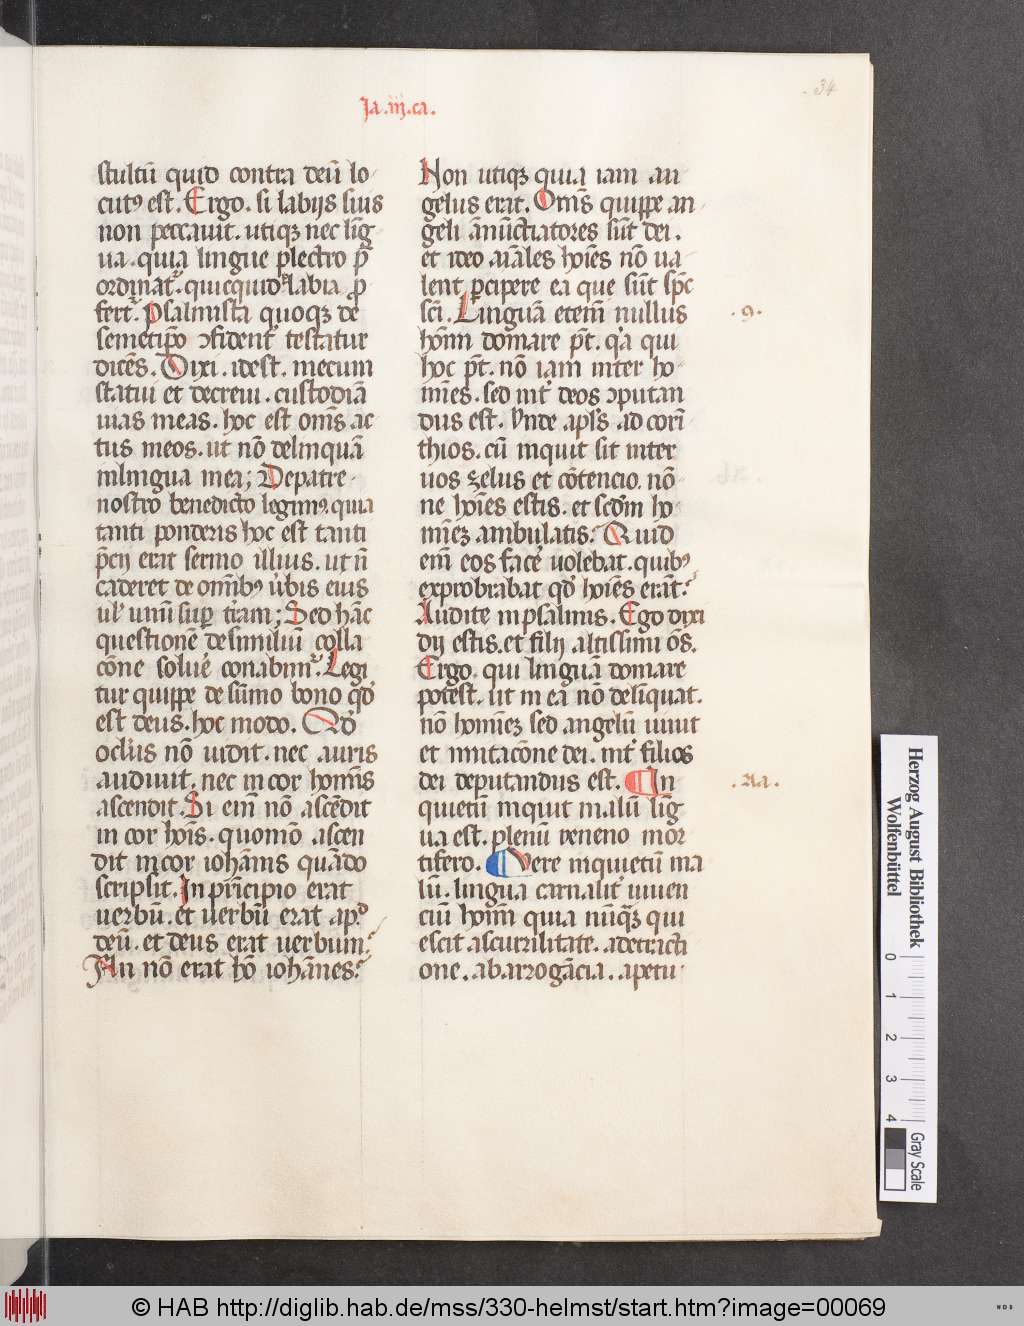 34
Ja.iij.ca.
stultū quid contra deū lo
cutꝰ est. Ergo. si labijs suis
non peccauit. utiqꝫ nec līg
ua. quia lingue plectro p̄
ordinat᷑. quicquid labia ꝓ
fert᷑. Psalmista quoqꝫ de
semetip̄o ↄfident᷑ testatur
dicēs. Dixi. idest. mecum
statui et decreui. custodiā
uias meas. hoc est om̄s ac
tus meos. ut nō delinquā
inlingua mea; Depatre
nostro benedicto legimꝰ. quia
tanti ponderis hoc est tanti
p̄cij erat sermo illius. ut n̄
caderet de om̄ibꝰ ūbis eius
ul᷑ unū suꝑ t̄ram; Sed hāc
questionē desimiliū colla
cōne soluē conabim᷑. Legi
tur quippe de sūmo bono qd̓
est deus. hoc modo. Qd̓
oclīs nō uidit. nec auris
audiuit. nec in cor homīs
ascendit. Si em̄ nō ascēdit
in cor hoīs. quomō ascen
dit in cor iohānis quādo
scripsit. In prīncipio erat
uerbū. et uerbū erat ap̓
deū. et deus erat uerbum.
An nō erat hō iohānes.
Non utiqꝫ quia iam an
gelus erat. Om̄s quippe an
geli ānūctiatores sūt dei.
et ideo aīales hoīes nō ua
lent ꝑcipere ea que sūt sp̄c
sc̄i. Linguā etem̄ nullus
hōm domare pt̄. qa qui
hoc pt̄. nō iam inter ho
mīes. sed int᷑ deos ↄputan
dus est. Vnde apl̄s ad corī
thios. cū inquit sit inter
uos zelus et cōtencio. nō
ne hoīes estis. et scdm̄ ho
mīeꝫ ambulatis. Quid
em̄ eos facē uolebat. quibꝰ
exprobrabat qd̓ hoīes erāt.
Audite in psalmis. Ego dixi
dij estis. et filij altissimi ōs.
Ergo. qui linguā domare
potest. ut in ea nō delīquat.
nō homīeꝫ sed angelū uiuit
et imitacōne dei. int᷑ filios
dei deputandus est. In
quietū inquit malū līg
ua est. plenū ueneno mor
tifero. Vere inquietū ma
lū. lingua carnalit᷑ uiuen
ciū homī quia nūqꝫ qui
escit ascurilitate. adetracti
one. ab arrogācia. apetu
.9.
.Aa.
Herzog August Bibliothek
Wolfenbüttel
0 1 2 3 4
Gray Scale
© HAB http://diglib.hab.de/mss/330-helmst/start.htm?image=00069